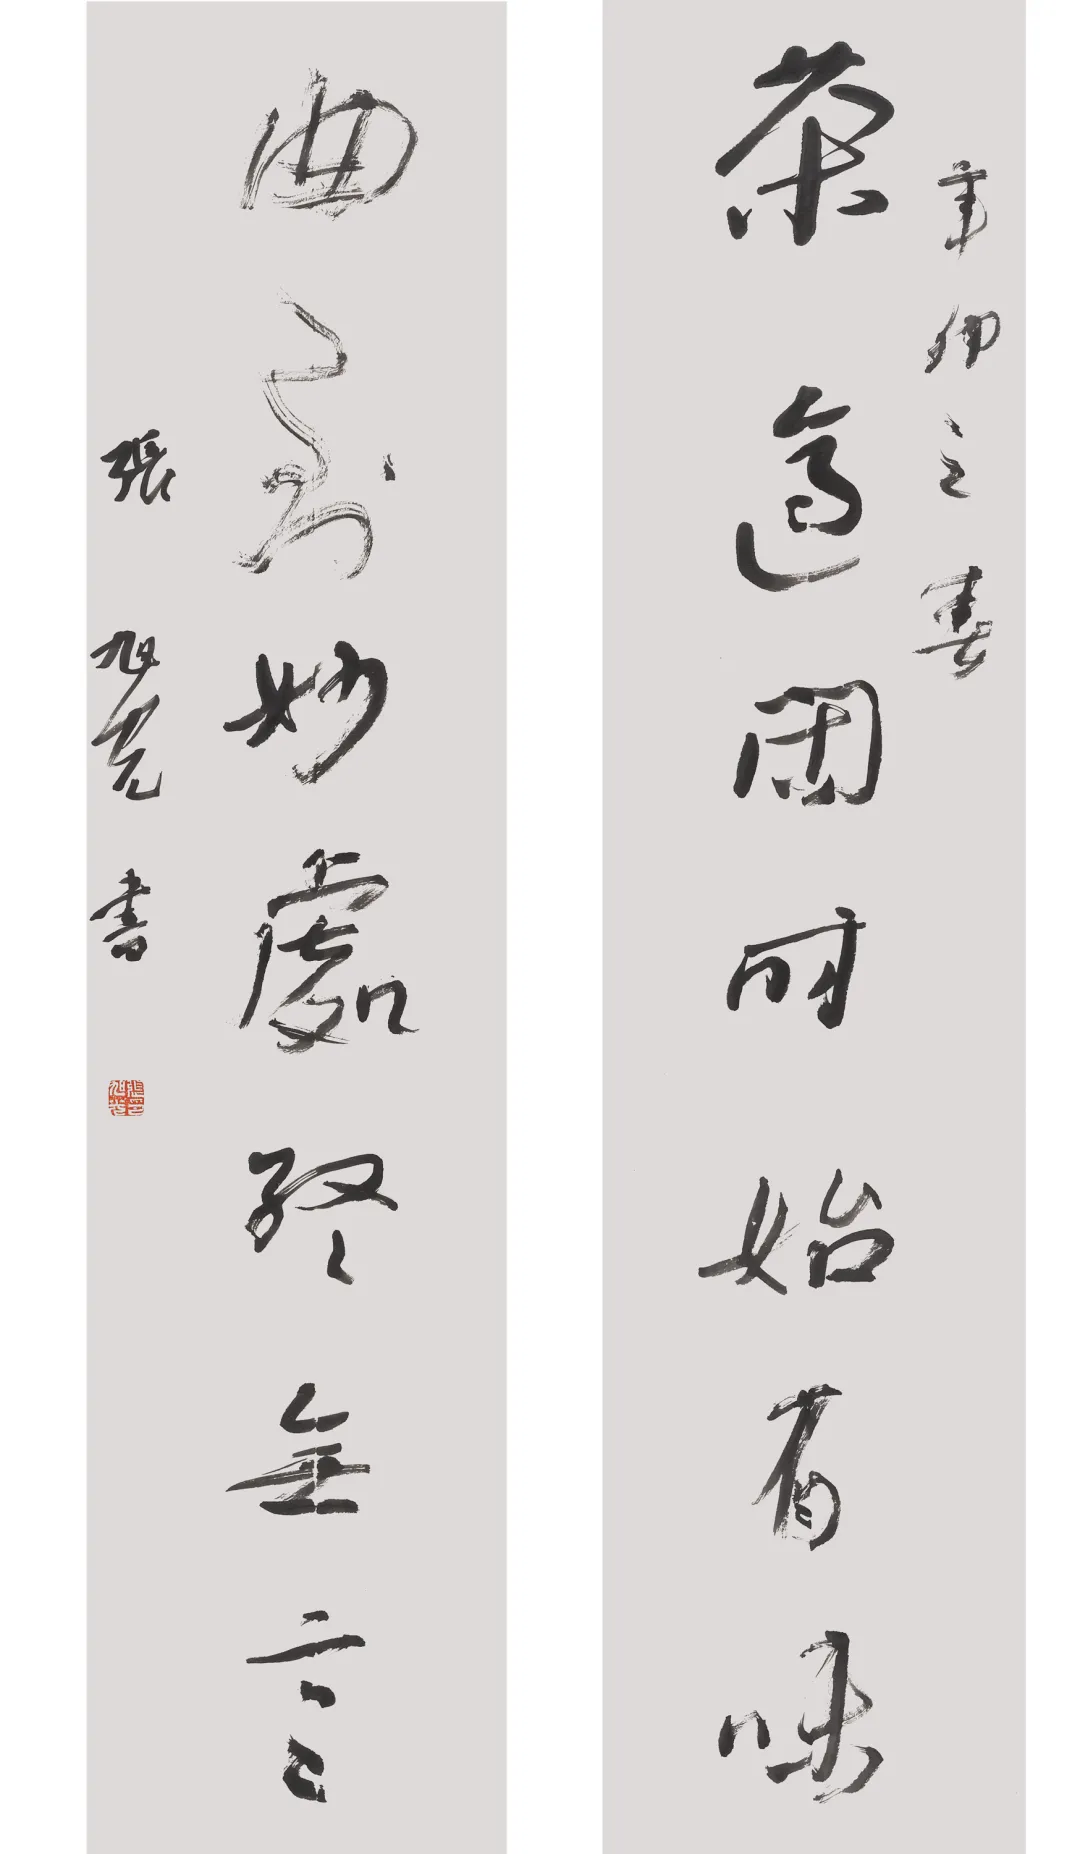 辛卯之春
茶適閑時始有味
曲到妙處終無言
張旭光書